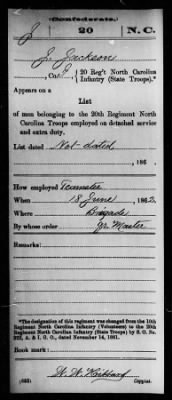 Confederate.
J 20 N.C.
J. Jackson
, Co. , 20 Reg't North Carolina
Infantry (State Troops).*
Appears on a
List
of men belonging to the 20th Regiment North
Carolina Troops employed on detached service
and extra duty.
List dated Not dated
, 186 .
How employed Teamster
When 18 June , 1862.
Where Brigade
By whose order Qr. Master
Remarks:
*The designation of this regiment was changed from the 10th
Regiment North Carolina Infantry (Volunteers) to the 20th
Regiment North Carolina Infantry (State Troops) by S. O. No.
222, A. & I. G. O., dated November 14, 1861.
Book mark:
Copyist.